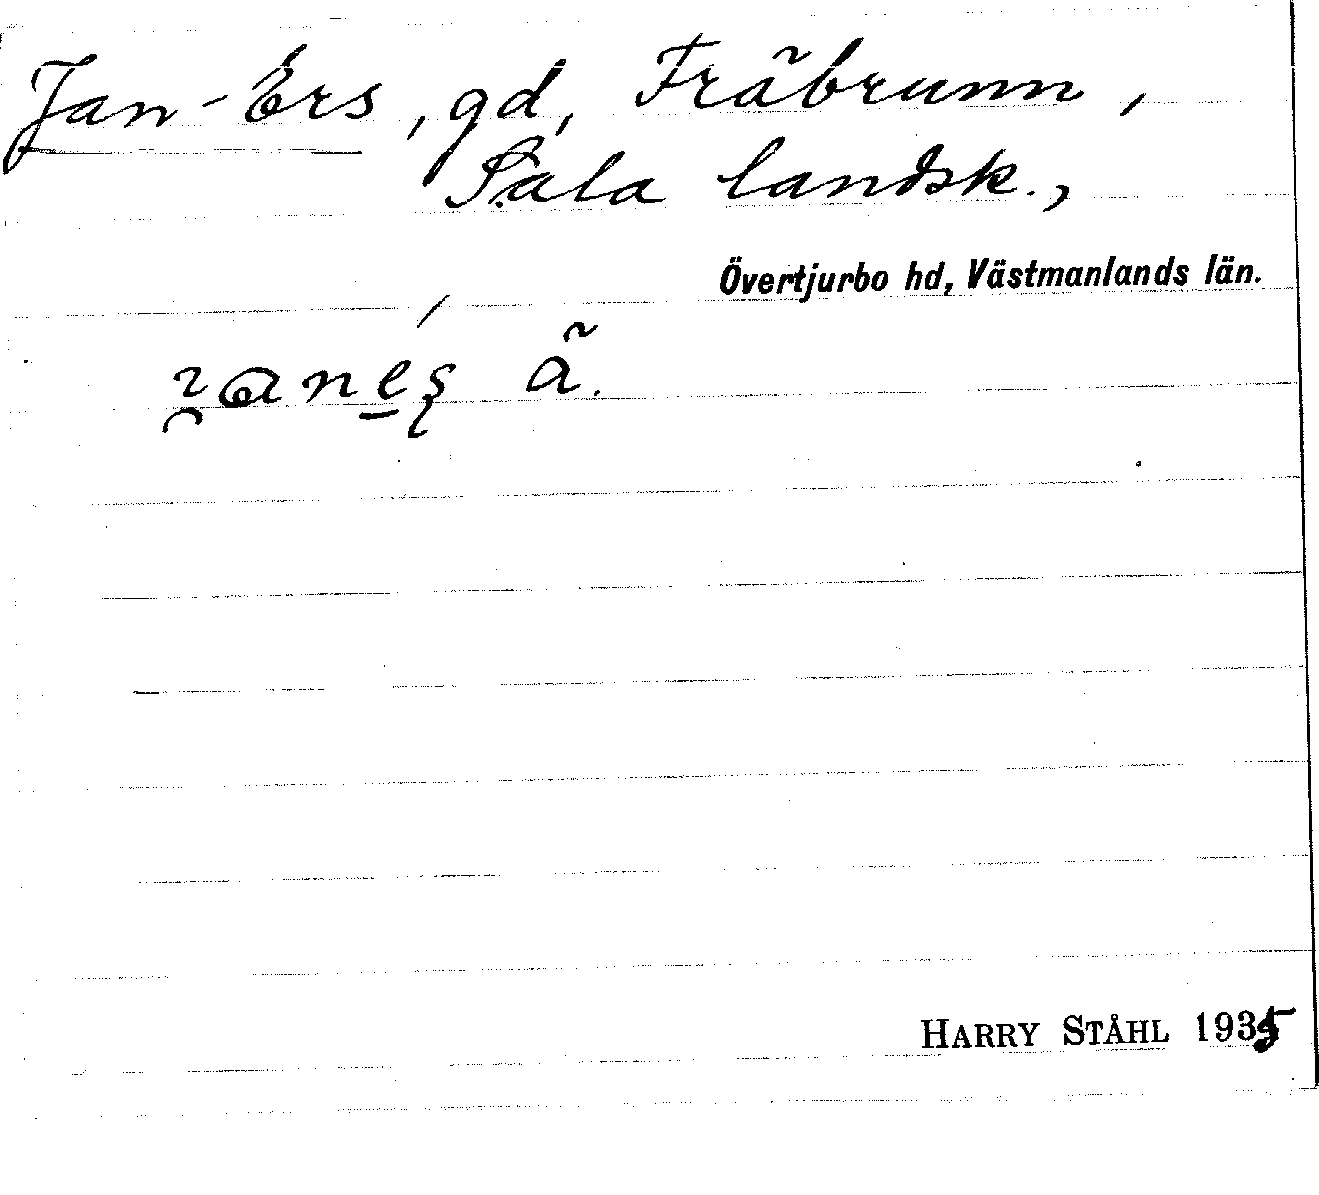 Jan-Ers, gd, Fräbrunn,
Sala landsk.,
Övertjurbo hd, Västmanlands län.
ã.
HARRY STÅHL 1935